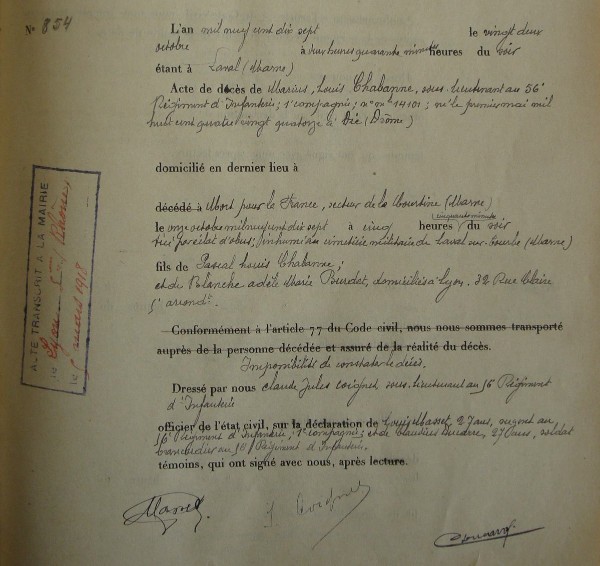 N° 854
L'an mil neuf cent dix sept le vingt deux
octobre à deux heures quarante minutes heures du soir
étant à Laval (Marne)
Acte de décès de Marius, Louis Chabanne, sous-lieutenant au 56e
Régiment d'Infanterie; 1e compagnie; n° mle 14101; né le premier mai mil
huit cent quatre vingt quatorze à Die (Drôme)
domicilié en dernier lieu à
décédé à Mort pour la France, secteur de la Mourtine (Marne)
le onze octobre mil neuf cent dix sept à cinq heures cinquante minutes du soir
tué par éclat d'obus; inhumé au cimetière militaire de Laval-sur-Tourbe (Marne)
fils de Pascal Louis Chabanne;
et de Blanche adèle Marie Burdet, domiciliés à Lyon. 32 Rue Claire
5e arrondt.
Conformément à l'article 77 du Code civil, nous nous sommes transporté
auprès de la personne décédée et assuré de la réalité du décès.
Impossibilité de constater le décès.
Dressé par nous Claude Jules Coignet sous-lieutenant au 56e Régiment
d'Infanterie
officier de l'état civil, sur la déclaration de Louis Masset, 27 ans, sergent au
56e Régiment d'Infanterie, 1e compagnie; et de Claudius Ducarre, 27 ans, soldat
brancardier au 56e Régiment d'Infanterie.
témoins, qui ont signé avec nous, après lecture.
ACTE TRANSCRIT A LA MAIRIE
DE Lyon 5me Rhône,
LE mars 1918